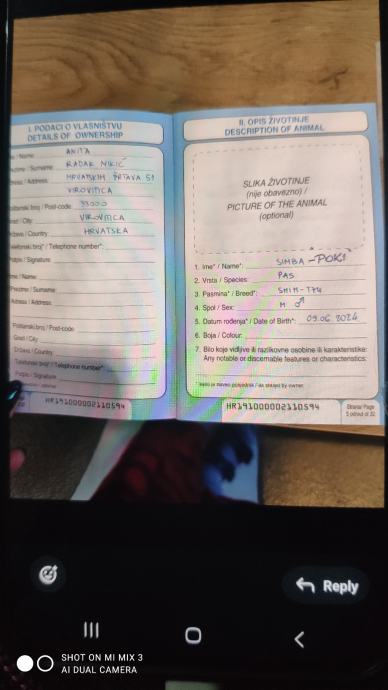 I. PODACI O VLASNIŠTVU
DETAILS OF OWNERSHIP
/ Name: ANITA
/ Surname: RADAK NIKIĆ
/ Address: HRVATSKIH ŽRTAVA 51
VIROVITICA
Poštanski broj / Post-code: 33000
Grad / City: VIROVITICA
Država / Country: HRVATSKA
Telefonski broj* / Telephone number*:
Potpis / Signature
Ime / Name:
Prezime / Surname:
Adresa / Address:
Poštanski broj / Post-code
Grad / City:
Država / Country
Telefonski broj* / Telephone number*:
Potpis / Signature
HR191000002110594
II. OPIS ŽIVOTINJE
DESCRIPTION OF ANIMAL
SLIKA ŽIVOTINJE
(nije obavezno) /
PICTURE OF THE ANIMAL
(optional)
1. Ime* / Name*: SIMBA - POKI
2. Vrsta / Species: PAS
3. Pasmina* / Breed*: SHIH-TZU
4. Spol / Sex: M ♂
5. Datum rođenja* / Date of Birth*: 09.06.2024
6. Boja / Colour:
7. Bilo koje vidljive ili razlikovne osobine ili karakteristike:
Any notable or discernable features or characteristics:
* kako je naveo posjednik / as stated by owner
HR191000002110594
Stranica/ Page
5 od/out of 32
Reply
SHOT ON MI MIX 3
AI DUAL CAMERA